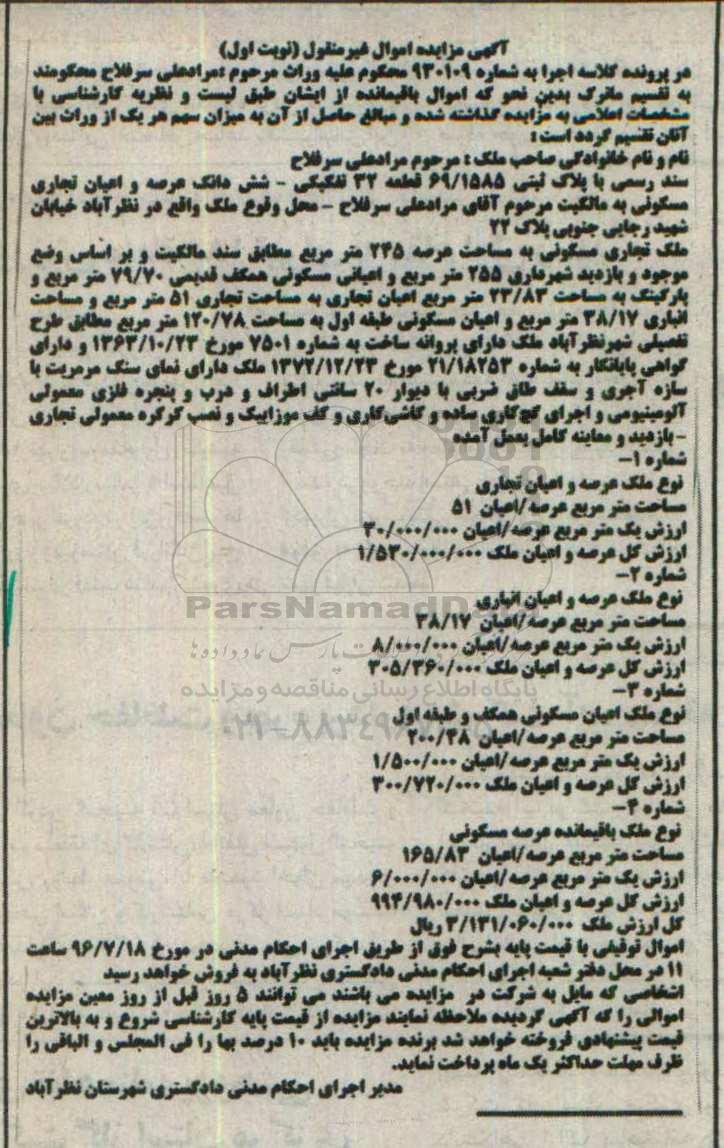 آگهی مزایده اموال غیرمنقول (نوبت اول)
در پرونده کلاسه اجرا به شماره ۹۳۰۱۰۹ محکوم علیه وراث مرحوم :مرادعلی سرفلاح محکومند
به تقسیم ماترک بدین نحو که اموال باقیمانده از ایشان طبق لیست و نظریه کارشناسی با
مشخصات اعلامی به مزایده گذاشته شده و مبالغ حاصل از آن به میزان سهم هر یک از وراث بین
آنان تقسیم گردد است :
نام و نام خانوادگی صاحب ملک : مرحوم مرادعلی سرفلاح
سند رسمی با پلاک ثبتی ۶۹/۱۵۸۵ قطعه ۳۲ تفکیکی - شش دانگ عرصه و اعیان تجاری
مسکونی به مالکیت مرحوم آقای مرادعلی سرفلاح - محل وقوع ملک واقع در نظرآباد خیابان
شهید رجایی جنوبی پلاک ۲۲
ملک تجاری مسکونی به مساحت عرصه ۲۴۵ متر مربع مطابق سند مالکیت و بر اساس وضع
موجود و بازدید شهرداری ۲۵۵ متر مربع و اعیانی مسکونی همکف قدیمی ۷۹/۷۰ متر مربع و
پارکینگ به مساحت ۲۳/۸۳ متر مربع اعیان تجاری به مساحت تجاری ۵۱ متر مربع و مساحت
انباری ۳۸/۱۷ متر مربع و اعیان مسکونی طبقه اول به مساحت ۱۲۰/۷۸ متر مربع مطابق طرح
تفصیلی شهرنظرآباد ملک دارای پروانه ساخت به شماره ۷۵۰۱ مورخ ۱۳۶۳/۱۰/۲۳ و دارای
گواهی پایانکار به شماره ۲۱/۱۸۲۵۳ مورخ ۱۳۷۲/۱۲/۲۳ ملک دارای نمای سنگ مرمریت با
سازه آجری و سقف طاق ضربی با دیوار ۲۰ سانتی اطراف و درب و پنجره فلزی معمولی
آلومینیومی و اجرای گچ کاری ساده و کاشی کاری و کف موزاییک و نصب کرکره معمولی تجاری
- بازدید و معاینه کامل بعمل آمده
شماره ۱-
نوع ملک عرصه و اعیان تجاری
مساحت متر مربع عرصه/اعیان ۵۱
ارزش یک متر مربع عرصه/اعیان ۳۰/۰۰۰/۰۰۰
ارزش کل عرصه و اعیان ملک ۱/۵۳۰/۰۰۰/۰۰۰
شماره ۲-
نوع ملک عرصه و اعیان انباری
مساحت متر مربع عرصه/اعیان ۳۸/۱۷
ارزش یک متر مربع عرصه/اعیان ۸/۰۰۰/۰۰۰
ارزش کل عرصه و اعیان ملک ۳۰۵/۳۶۰/۰۰۰
شماره ۳-
نوع ملک اعیان مسکونی همکف و طبقه اول
مساحت متر مربع عرصه/اعیان ۲۰۰/۴۸
ارزش یک متر مربع عرصه/اعیان ۱/۵۰۰/۰۰۰
ارزش کل عرصه و اعیان ملک ۳۰۰/۷۲۰/۰۰۰
شماره ۴-
نوع ملک باقیمانده عرصه مسکونی
مساحت متر مربع عرصه/اعیان ۱۶۵/۸۳
ارزش یک متر مربع عرصه/اعیان ۶/۰۰۰/۰۰۰
ارزش کل عرصه و اعیان ملک ۹۹۴/۹۸۰/۰۰۰
کل ارزش ملک ۳/۱۳۱/۰۶۰/۰۰۰ ریال
اموال توقیفی با قیمت پایه بشرح فوق از طریق اجرای احکام مدنی در مورخ ۹۶/۷/۱۸ ساعت
۱۱ در محل دفتر شعبه اجرای احکام مدنی دادگستری نظرآباد به فروش خواهد رسید
اشخاصی که مایل به شرکت در مزایده می باشند می توانند ۵ روز قبل از روز معین مزایده
اموالی را که آگهی گردیده ملاحظه نمایند مزایده از قیمت پایه کارشناسی شروع و به بالاترین
قیمت پیشنهادی فروخته خواهد شد برنده مزایده باید ۱۰ درصد بها را فی المجلس و الباقی را
ظرف مهلت حداکثر یک ماه پرداخت نماید.
مدیر اجرای احکام مدنی دادگستری شهرستان نظرآباد
ParsNamadData
پایگاه اطلاع رسانی مناقصه و مزایده